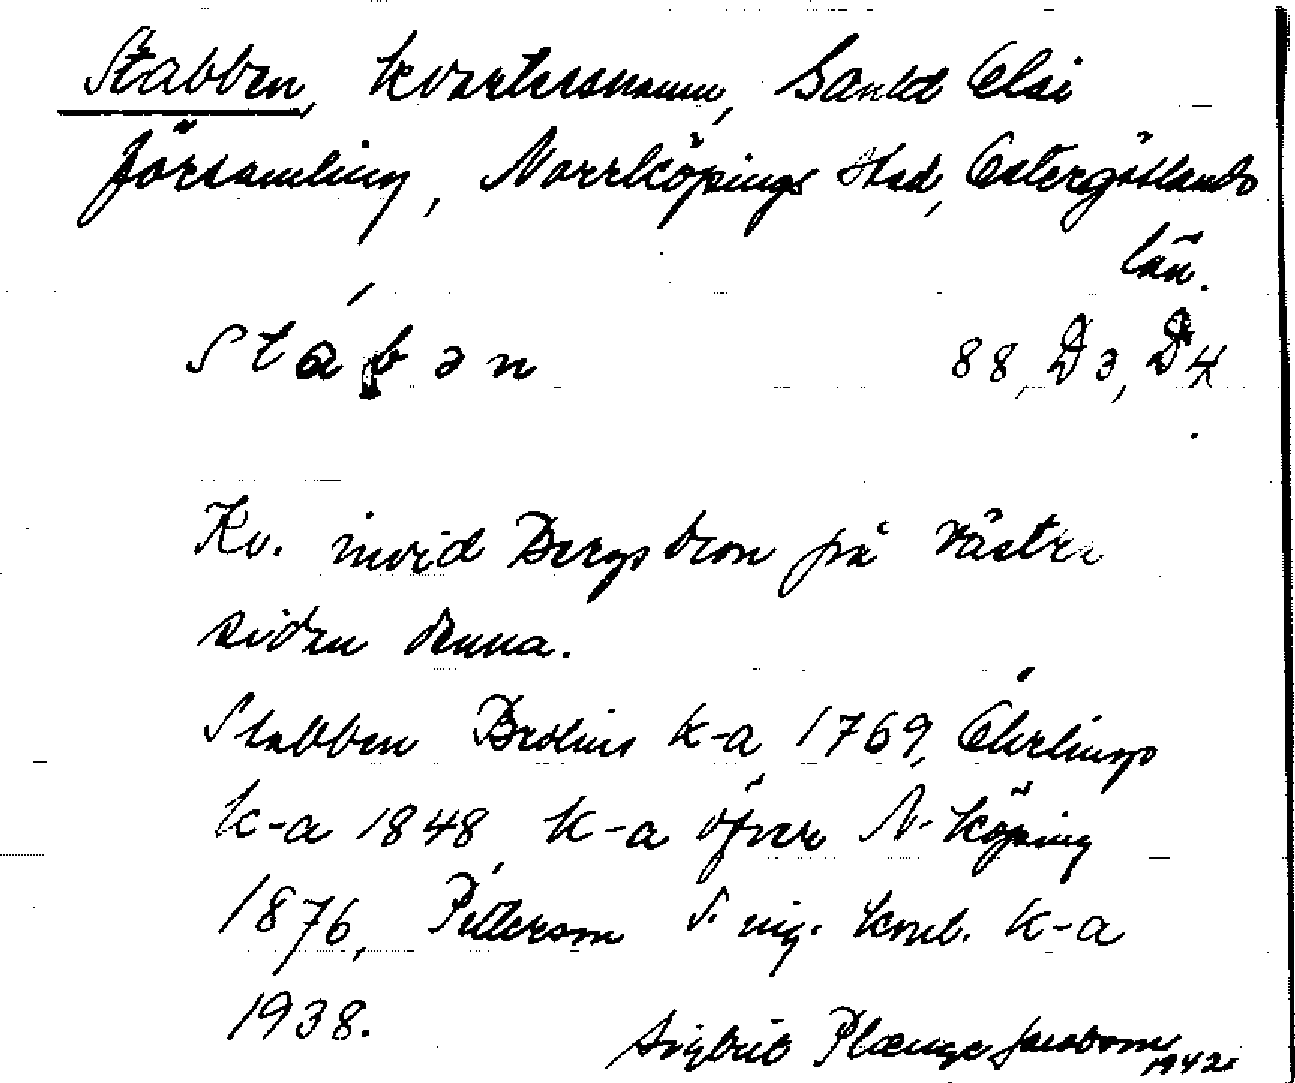 Stabben, kvartersnamn, Sankt Olai
församling, Norrköpings stad, Östergötlands
län.
stábən 88, D3, D4
Kv. invid Bergsbron på västra
sidan denna.
Stabben Brolins k-a 1769, Ehrlings
k-a 1848, K-a öfver N-köping
1876, Petterson K-a
1938.
Sigbrit Plænge Jacobson
1942.